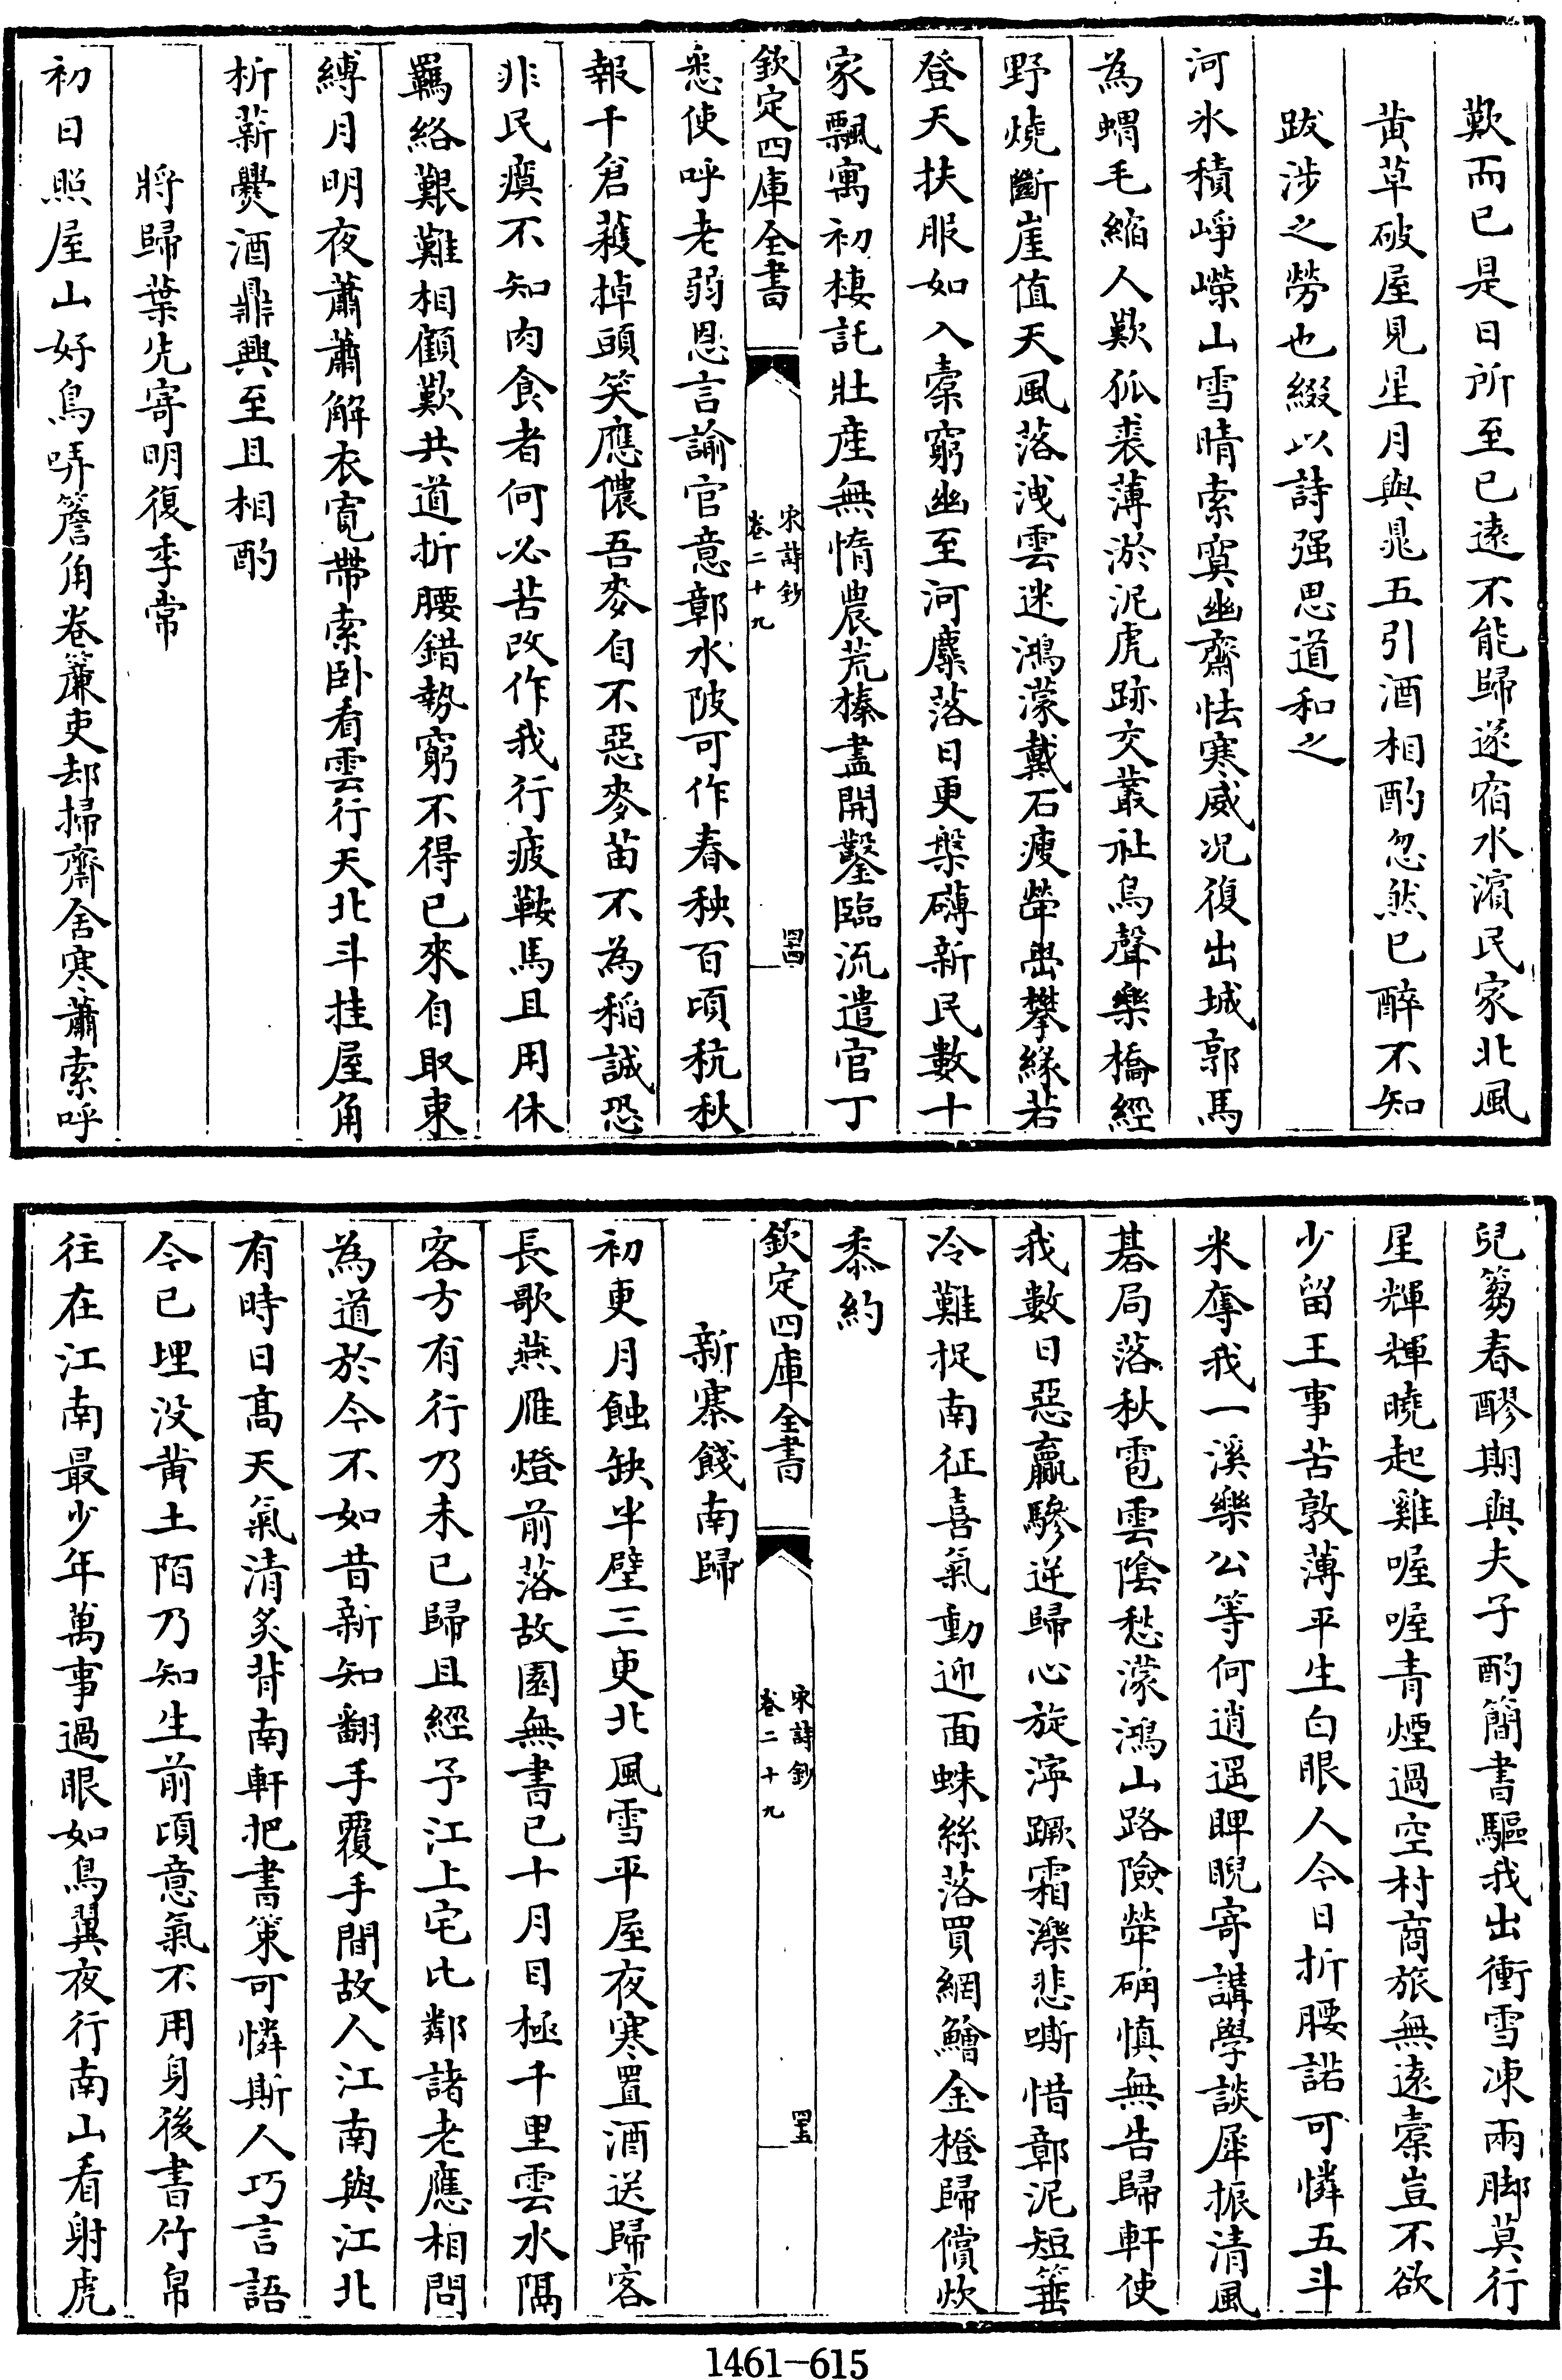 歎而已是日所至已遠不能歸遂宿水濵民家北風
黄草破屋見星月與晁五引酒相酌忽然已醉不知
跋涉之勞也綴以詩强思道和之
河氷積崢嶸山雪晴索寞幽齋怯寒威况復出城郭馬
為蝟毛縮人歎狐裘薄淤泥虎跡交叢社烏聲樂橋經
野燒斷崖值天風落洩雲迷鴻濛戴石瘦犖㟧攀縁若
登天扶服如入橐窮幽至河麋落日更槃礴新民數十
家飄寓初棲託壯産無惰農荒榛盡開鑿臨流遣官丁
欽定四庫全書
宋詩鈔
卷二十九
四十四
悉使呼老弱恩言諭官意鄣水陂可作春秧百頃秔秋
報千倉穫掉頭笑應儂吾麥自不惡麥苗不為稲誠恐
非民瘼不知肉食者何必苦改作我行疲鞍馬且用休
羈絡艱難相顧歎共道折腰錯勢窮不得已來自取束
縛月明夜蕭蕭解衣寛帶索卧看雲行天北斗挂屋角
析薪爨酒鼎興至且相酌
將歸葉先寄明復季常
初日照屋山好鳥哢簷角卷簾吏却掃齋舍寒蕭索呼
兒篘春醪期與夫子酌簡書驅我出衝雪凍兩脚莫行
星輝輝曉起雞喔喔青煙過空村商旅無遠橐豈不欲
少留王事苦敦薄平生白眼人今日折腰諾可憐五斗
米奪我一溪樂公等何逍遥睥睨寄講學談犀振清風
碁局落秋雹雲陰愁濛鴻山路險犖确慎無告歸軒使
我數日惡羸驂逆歸心旋濘蹶霜濼悲嘶惜鄣泥短箠
冷難捉南征喜氣動迎面蛛絲落買網鱠金橙歸償炊
黍約
欽定四庫全書
宋詩鈔
卷二十九
四十五
新寨餞南歸
初更月蝕缺半壁三更北風雪平屋夜寒置酒送歸客
長歌燕雁燈前落故園無書已十月目極千里雲水隔
客方有行乃未已歸且經予江上宅比鄰諸老應相問
為道於今不如昔新知翻手覆手間故人江南與江北
有時日髙天氣清炙背南軒把書策可憐斯人巧言語
今已埋没黄土陌乃知生前頃意氣不用身後書竹帛
往在江南最少年萬事過眼如鳥翼夜行南山看射虎
1461-615